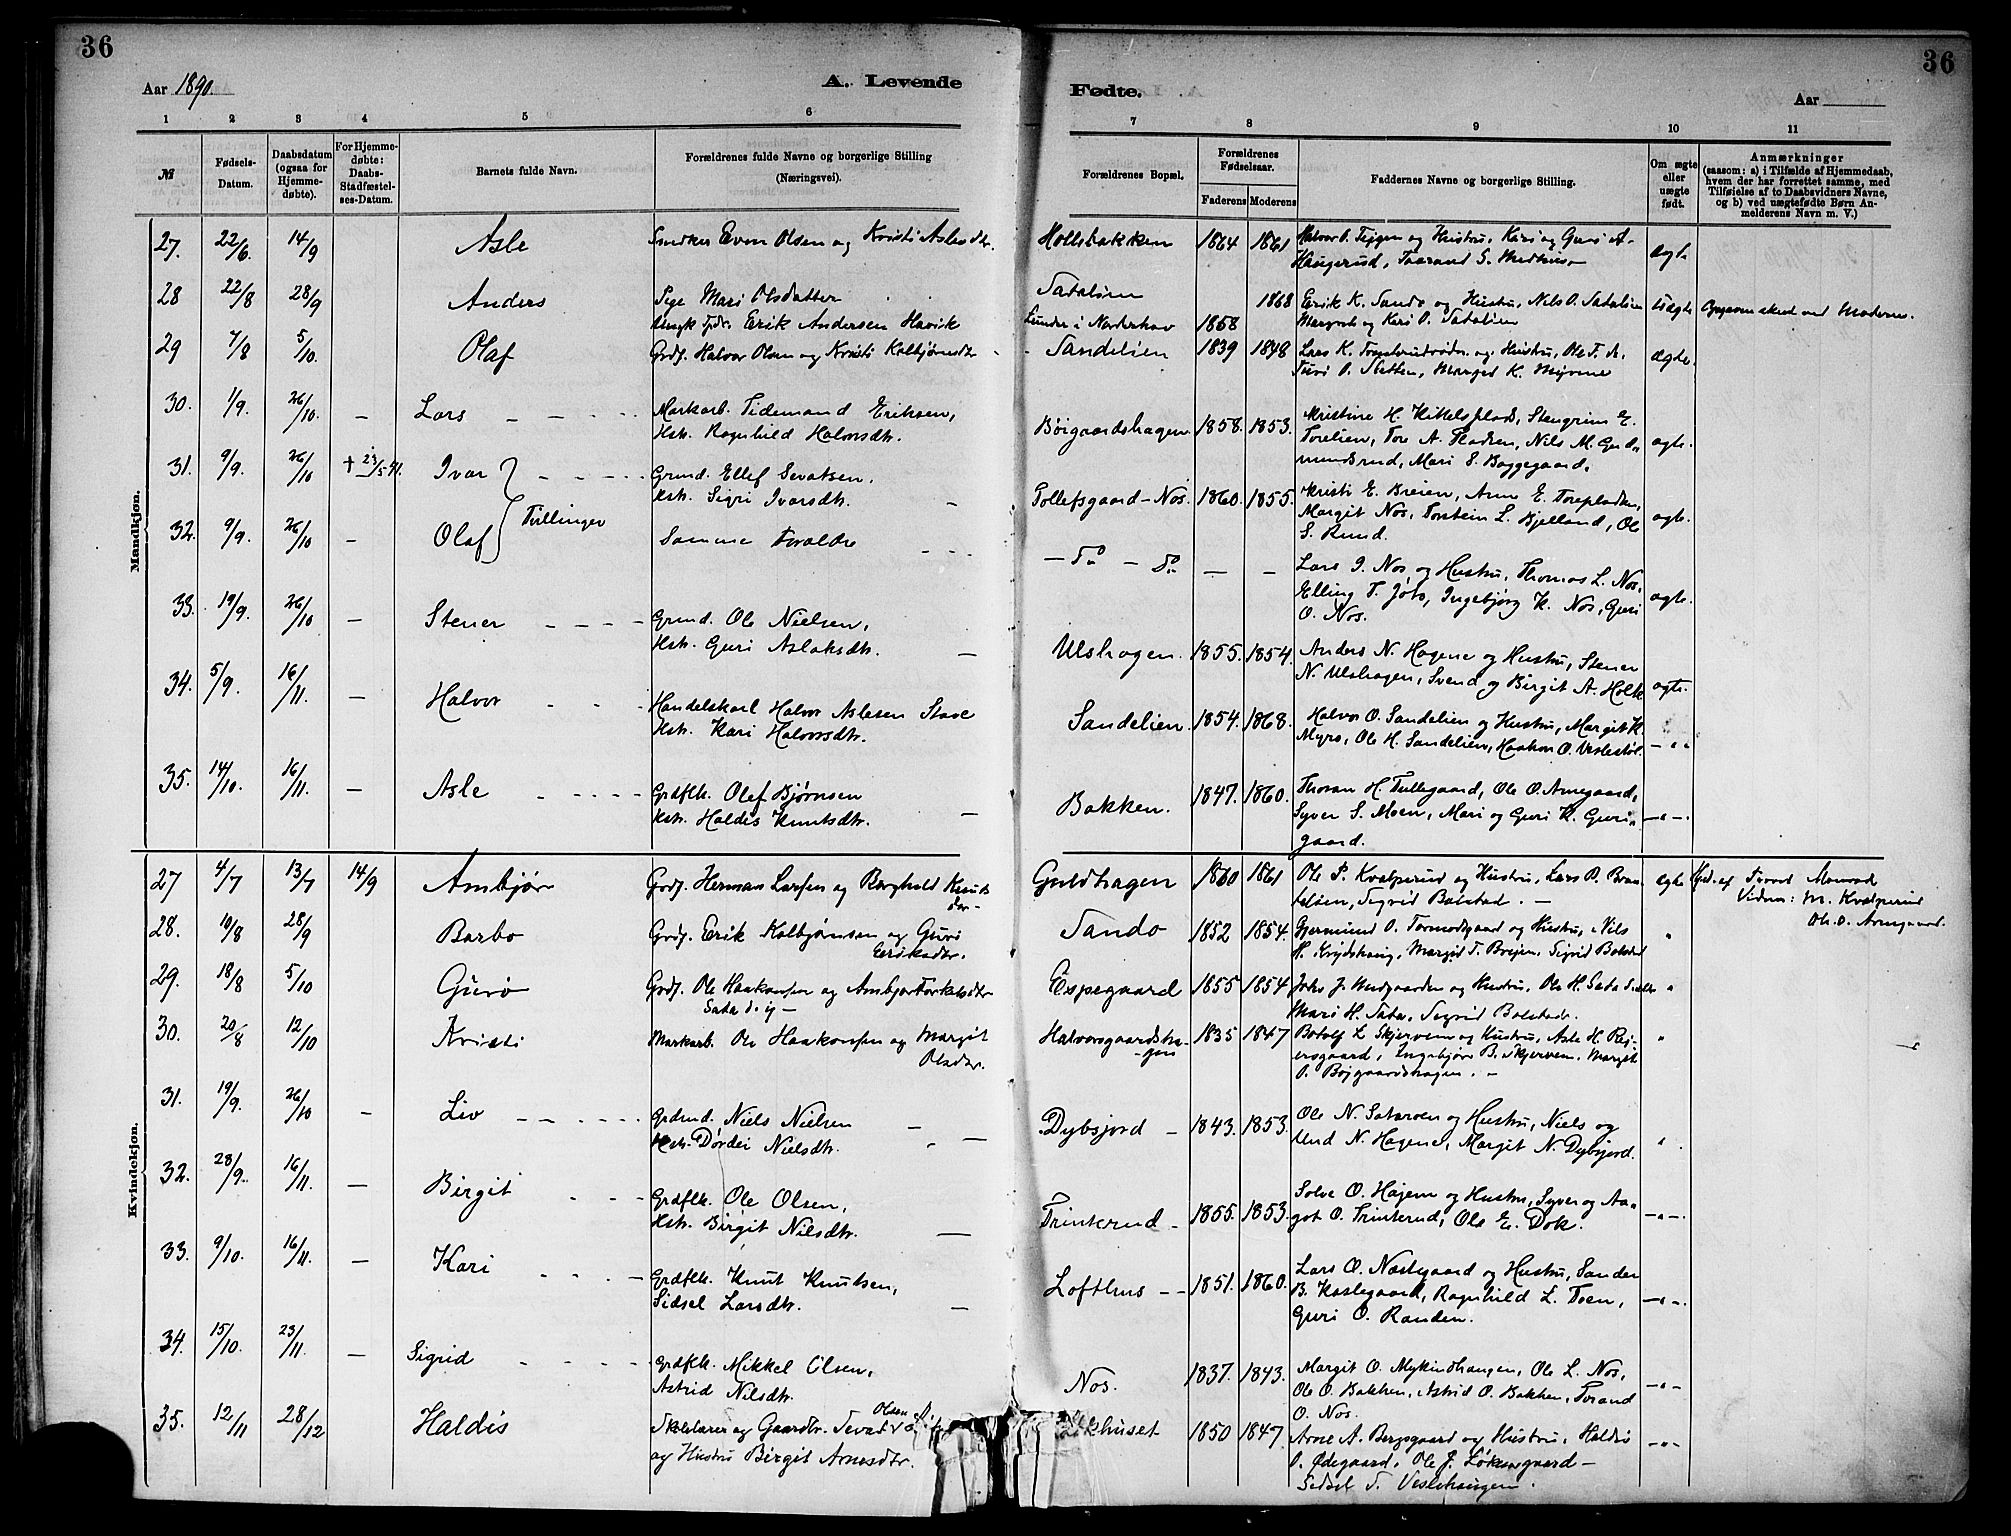 36
36
Aar 1890.
A. Levende
Fødte.
Aar
1 2 3 4 5 6 7 8 9 10 11
№
Fødsels-Datum.
Daabsdatum (ogsaa for Hjemmedøbte).
For Hjemmedøbte: Daabs-Stadfæstelses-Datum.
Barnets fulde Navn.
Forældrenes fulde Navne og borgerlige Stilling (Næringsvei).
Forældrenes Bopæl.
Forældrenes Fødselsaar.
Faderens Moderens
Faddernes Navne og borgerlige Stilling.
Om ægte eller uægte født.
Anmærkninger
(saasom: a) i Tilfælde af Hjemmedaab,
hvem der har forrettet samme, med
Tilføielse af to Daabsvidners Navne,
og b) ved uægtefødte Børn An-
melderens Navn m. V.)
Mandkjøn.
27. 22/6. 14/9 Asle Smedker Even Olsen og Kristi Aslesdtr. 1864 1861 Halvor og Hustru, Kari og Guri A.
Haugerud, ægte
28 22/8 28/9 Anders Pige Mari Olsdatter Sataløien 1868 Erik K. Sando og Hustru, Nils O. Sataløien uægte
Ungk. Erik Andersen Havik Lunder i Norderhov 1868 Margrete og Kari O. Sataløien
29 7/8 5/10. Olaf Grdj. Halvor Olsen og Kristi Kolbjørnsdtr Sandelien 1839 1848 Lars K. og Hustru, Ole T.
Turi O. Sletten, Marget K. Myrene ægte.
30. 1/9. 26/10 – Lars Markarb. Tidemand Eriksen,
Hstr. Ragnhild Halvorsdtr. Børgaardshagen 1858. 1853. Kristine H. Kittelsplads, Stengrim E.
Torelien, Tore A. Pladsen, Nils M. Gud-
mundsrud, Mari S. Baggegaard. ægte.
31. 9/9. 26/10 + 23/5 91. Ivar Grmd. Ellef Sevatsen,
Hstr. Sigri Ivarsdtr. Tollefsgaard-Nos. 1860. 1855. Kristi E. Breien, Arne E. Torepladsen,
Margit Nos, Torstein L. Bjelland, Ole
S. Rund. ægte.
Tvillinger
32. 9/9. 26/10 – Olaf Samme Foraldre – Do – Do – – Lars I. Nos og Hustru, Thomas L. Nos,
Elling T. Joto, Ingebjørg K. Nos, Guri
O. Nos. ægte.
33. 19/9. 26/10 – Stener Grmd. Ole Nielsen,
Hstr. Guri Aslaksdtr. Ulshagen. 1855. 1854. Anders N. Hagene og Hustru, Stener
N. Ulshagen, Svend og Birgit A. Holte ægte.
34. 5/9. 16/11. – Halvor Handelskarl Halvor Aslesen Stave
Hstr. Kari Halvorsdtr. Sandelien. 1854. 1868. Halvor O. Sandelien og Hustru, Margit K.
Myro, Ole H. Sandelien, Haakon O. Veslestøl. – " "
35. 14/10. 16/11. – Asle Grdflk. Olef Bjørnsen
Hstr. Haldis Knutsdtr. Bakken. 1847. 1860. Thoran H. Tullegaard, Ole O. Arnegaard,
Syver S. Moen, Mari og Guri K. Guri-
gaard. – " –
Kvindekjøn.
27 4/7 13/7 14/9 Ambjør Grdj. Herman Larsen og Borghild Knuts
dtr – Guldhagen 1860 1861 Ole P. Kvelprud og Hustru, Lars O.
Sigrid Bolstad. – ægte Hjd. af
Vidner: M. Kvelprud
Ole O. Arnegaard.
28. 10/8 28/9 Barbo Grdj. Erik Kolbjørnsen og Guri
Eriksdtr. Sando 1852 1854. Gjermund O. Tormodsgaard og Hustru, Nils
H. Margit T. Breien, Sigrid Bolstad "
29. 18/8 5/10 Guro Grdj. Ole Haakonsen og Ambjør Torkelsdtr
Sata Espegaard 1855 1854 John J. og Hustru, Ole H. Sata
Mari H. Sata, Sigrid Bolstad. "
30. 20/8 12/10 Kristi Markarb. Ole Haakonsen og Margit
Olsdtr. Halvorsgaardsha-
gen 1835 1847 Botolf L. Skjerven og Hustru, Asle H. Rej-
ersgaard, Ingebjør B. Skjerven, Margit
O. Bøjgaardshagen. – "
31. 19/9. 26/10 – Liv Grdmd. Niels Nielsen
Hstr. Dørdei Nielsdtr. Dybsjord – 1843. 1853. Ole N. Sataroen og Hustru, Niels og
Und N. Hagene, Margit N. Dybsjord. "
32. 28/9. 16/11. – Birgit Grdflk. Ole Olsen,
Hstr. Birgit Nilsdtr. Trinterud – 1855. 1853. Solve O. Hagen og Hustru, Syver og Aa-
got O. Trinterud, Ole E. Dok. – " –
33. 9/10. 16/11. – Kari Grdflk. Knut Knutsen,
Sidsel Larsdtr. Lofthus – – 1851. 1860. Lars O. Neslegaard og Hustru, Sander
B. Kaslegaard, Ragnhild L. Toen,
Guri O. Randen. – " –
34. 15/10. 23/11. – Sigrid Grdflk. Mikkel Olsen,
Astrid Nilsdtr. Nos. 1837. 1843. Margit O. Mykindhaugen, Ole L. Nos,
Ole O. Bakken, Astrid O. Bakken, Torand
O. Nos. – " –
35. 12/11 28/12 Haldis Skolelærer og Gaardbr. Sevat Olsen
og Hustru Birgit Arnesdtr. 1850 1847 Arne A. Bergsgaard og Hustru, Haldis
O. Ødegaard, Ole J. Løkensgaard –
Sidsel T. Veslehaugen. – " –